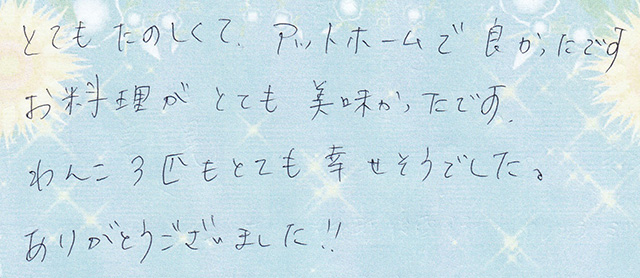 とてもたのしくて、アットホームで良かったです
お料理がとても美味かったです。
わんこ3匹もとても幸せそうでした。
ありがとうございました!!